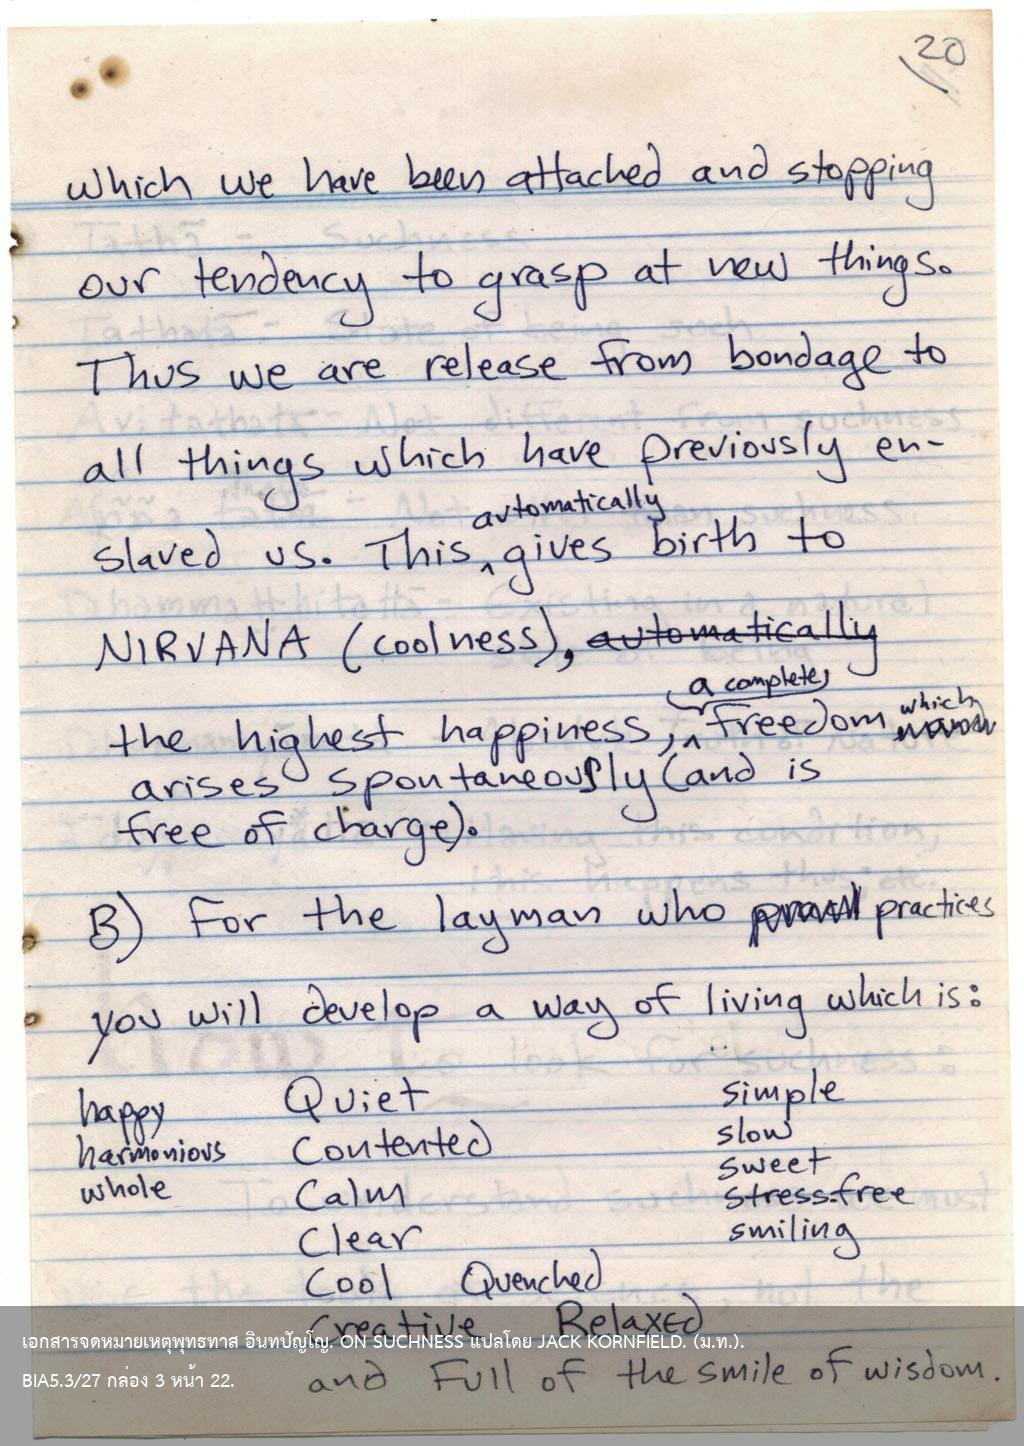 20
which we have been attached and stopping
our tendency to grasp at new things.
Thus we are release from bondage to
all things which have previously en-
automatically
slaved us. This ^ gives birth to
NIRVANA (coolness), automatically
a complete,
the highest happiness, ^ freedom which
arises spontaneously (and is
free of charge).
B) For the layman who practices
you will develop a way of living which is:
happy Quiet simple
harmonious Contented slow
whole Calm sweet
Clear stress-free
Cool Quenched smiling
Creative Relaxed
and Full of the smile of wisdom.
เอกสารจดหมายเหตุพุทธทาส อินทปัญโญ. ON SUCHNESS แปลโดย JACK KORNFIELD. (ม.ท.).
BIA5.3/27 กล่อง 3 หน้า 22.